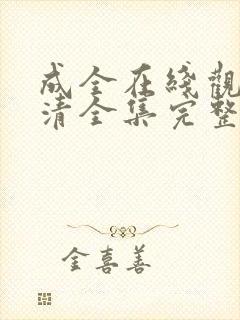 成全在綫觀
清全集完整
金喜善